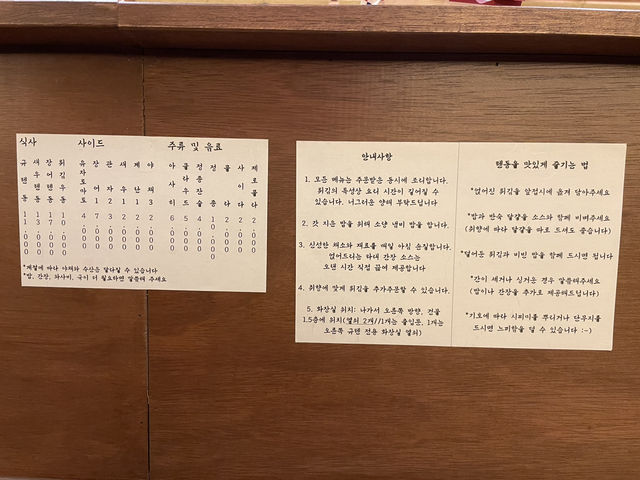 식사
규텐동
새우텐동
장어텐동
튀김우동
사이드
유자토마토
장어
관자
새우
계란
야채
주류 및 음료
아사히
정종
콜라 2,000
사이다 2,000
제로콜라 2,000
*계절에 따라 야채와 수산은 달라질 수 있습니다
*밥, 간장, 와사비, 국이 더 필요하면 말씀해 주세요
안내사항
1. 모든 메뉴는 주문받은 동시에 조리합니다.
튀김의 특성상 요리 시간이 길어질 수
있습니다. 너그러운 양해 부탁드립니다
2. 갓 지은 밥을 위해 소량 냄비 밥을 합니다.
3. 신선한 채소와 재료를 매일 아침 손질합니다.
얹어드리는 타레 간장 소스는
오랜 시간 직접 끓여 제공합니다
4. 취향에 맞게 튀김을 추가주문할 수 있습니다.
5. 화장실 위치: 나가서 오른쪽 방향, 건물
1.5층에 위치(열쇠 2개//1개는 출입문, 1개는
오른쪽 규텐 전용 화장실 열쇠)
텐동을 맛있게 즐기는 법
*얹어진 튀김을 앞접시에 옮겨 담아주세요
*밥과 반숙 달걀을 소스와 함께 비벼주세요
(취향에 따라 달걀을 따로 드셔도 좋습니다)
*덜어둔 튀김과 비빈 밥을 함께 드시면 됩니다
*간이 세거나 싱거운 경우 말씀해주세요
(밥이나 간장을 추가로 제공해드립니다)
*기호에 따라 시치미를 뿌리거나 단무지를
드시면 느끼함을 덜 수 있습니다 :-)